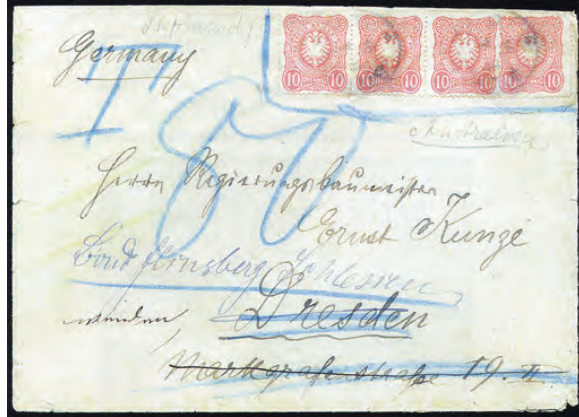 Germany
10 10 10 10 10 10 10 10
T 80
Australien
Herrn Regierungsbaumeister
Ernst Kunze
Flinsberg Schlesien
Dresden
Markgrafenstraße 19. II